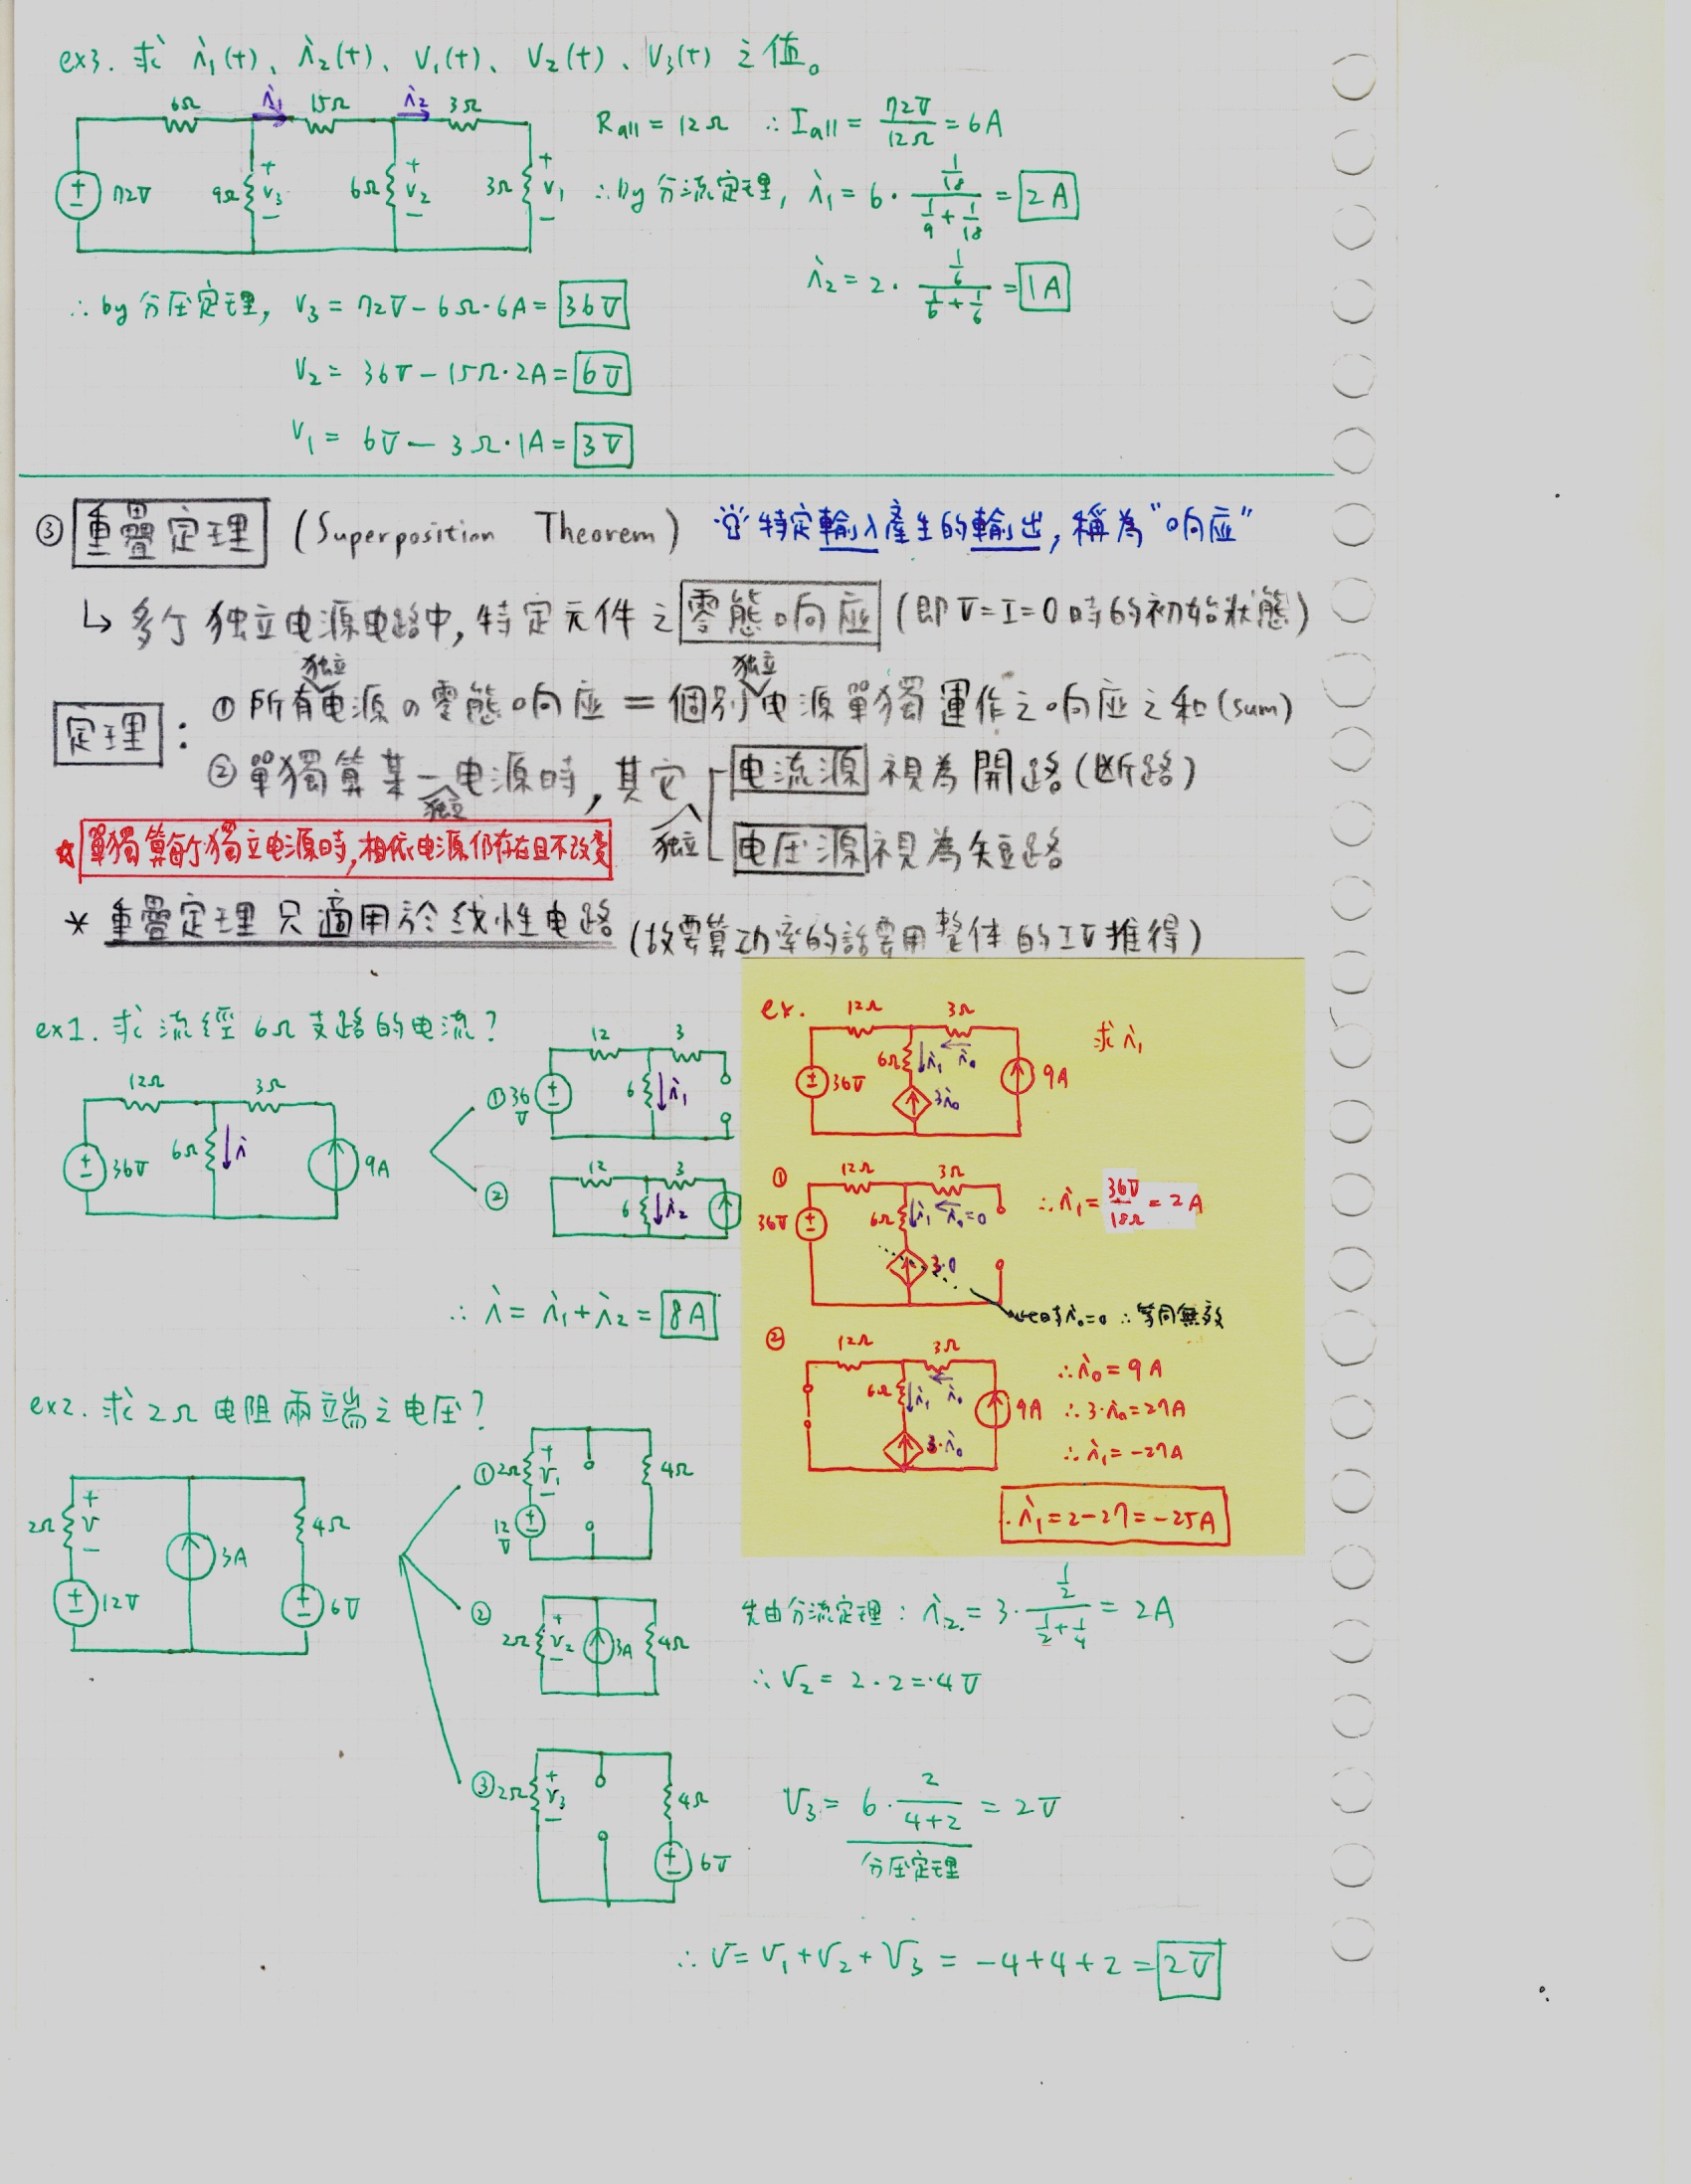 ex3. 求 i₁(t)、i₂(t)、V₁(t)、V₂(t)、V₃(t) 之值。
6Ω i₁ 15Ω i₂ 3Ω
72V 9Ω + V₃ − 6Ω + V₂ − 3Ω + V₁ −
R all = 12Ω ∴ I all = 72V/12Ω = 6A
∴ by 分流定理, i₁ = 6 · (1/18)/(1/9 + 1/18) = 2A
i₂ = 2 · (1/6)/(1/6 + 1/6) = 1A
∴ by 分压定理, V₃ = 72V − 6Ω·6A = 36V
V₂ = 36V − 15Ω·2A = 6V
V₁ = 6V − 3Ω·1A = 3V
③ 重疊定理 (Superposition Theorem) 特定輸入產生的輸出, 稱為"响应"
↳ 多个独立电源电路中, 特定元件之零態响应 (即 V=I=0 時的初始狀態)
定理:
① 所有独立電源の零態响应 = 個別独立电源單獨運作之响应之和(sum)
② 單獨算某一独立电源時, 其它独立
电流源 視為開路(断路)
电压源 視為短路
☆ 單獨算每个獨立电源時, 相依电源仍存在且不改變
* 重疊定理只適用於线性电路 (故要算功率的話要用整体的IV推得)
ex1. 求流經6Ω支路的电流?
12Ω 3Ω
36V 6Ω i 9A
① 36V 12 3 6 i₁
② 12 3 6 i₂
∴ i = i₁ + i₂ = 8A
ex. 12Ω 3Ω 求 i₁
36V 6Ω i₁ i₀ 3i₀ 9A
① 12Ω 3Ω
36V 6Ω i₁ i₀=0 3·0
∴ i₁ = 36V/18Ω = 2A
此時i₀=0 ∴等同無效
② 12Ω 3Ω
6Ω i₁ i₀ 3·i₀ 9A
∴ i₀ = 9A
∴ 3·i₀ = 27A
∴ i₁ = −27A
∴ i₁ = 2−27 = −25A
ex2. 求2Ω电阻兩端之电压?
2Ω + V − 12V 3A 4Ω 6V
① 2Ω + V₁ − 12V 4Ω
② 2Ω + V₂ − 3A 4Ω
先由分流定理: i₂ = 3 · (1/2)/(1/2 + 1/4) = 2A
∴ V₂ = 2·2 = 4V
③ 2Ω + V₃ − 4Ω 6V
V₃ = 6 · 2/(4+2) = 2V
分压定理
∴ V = V₁ + V₂ + V₃ = −4+4+2 = 2V